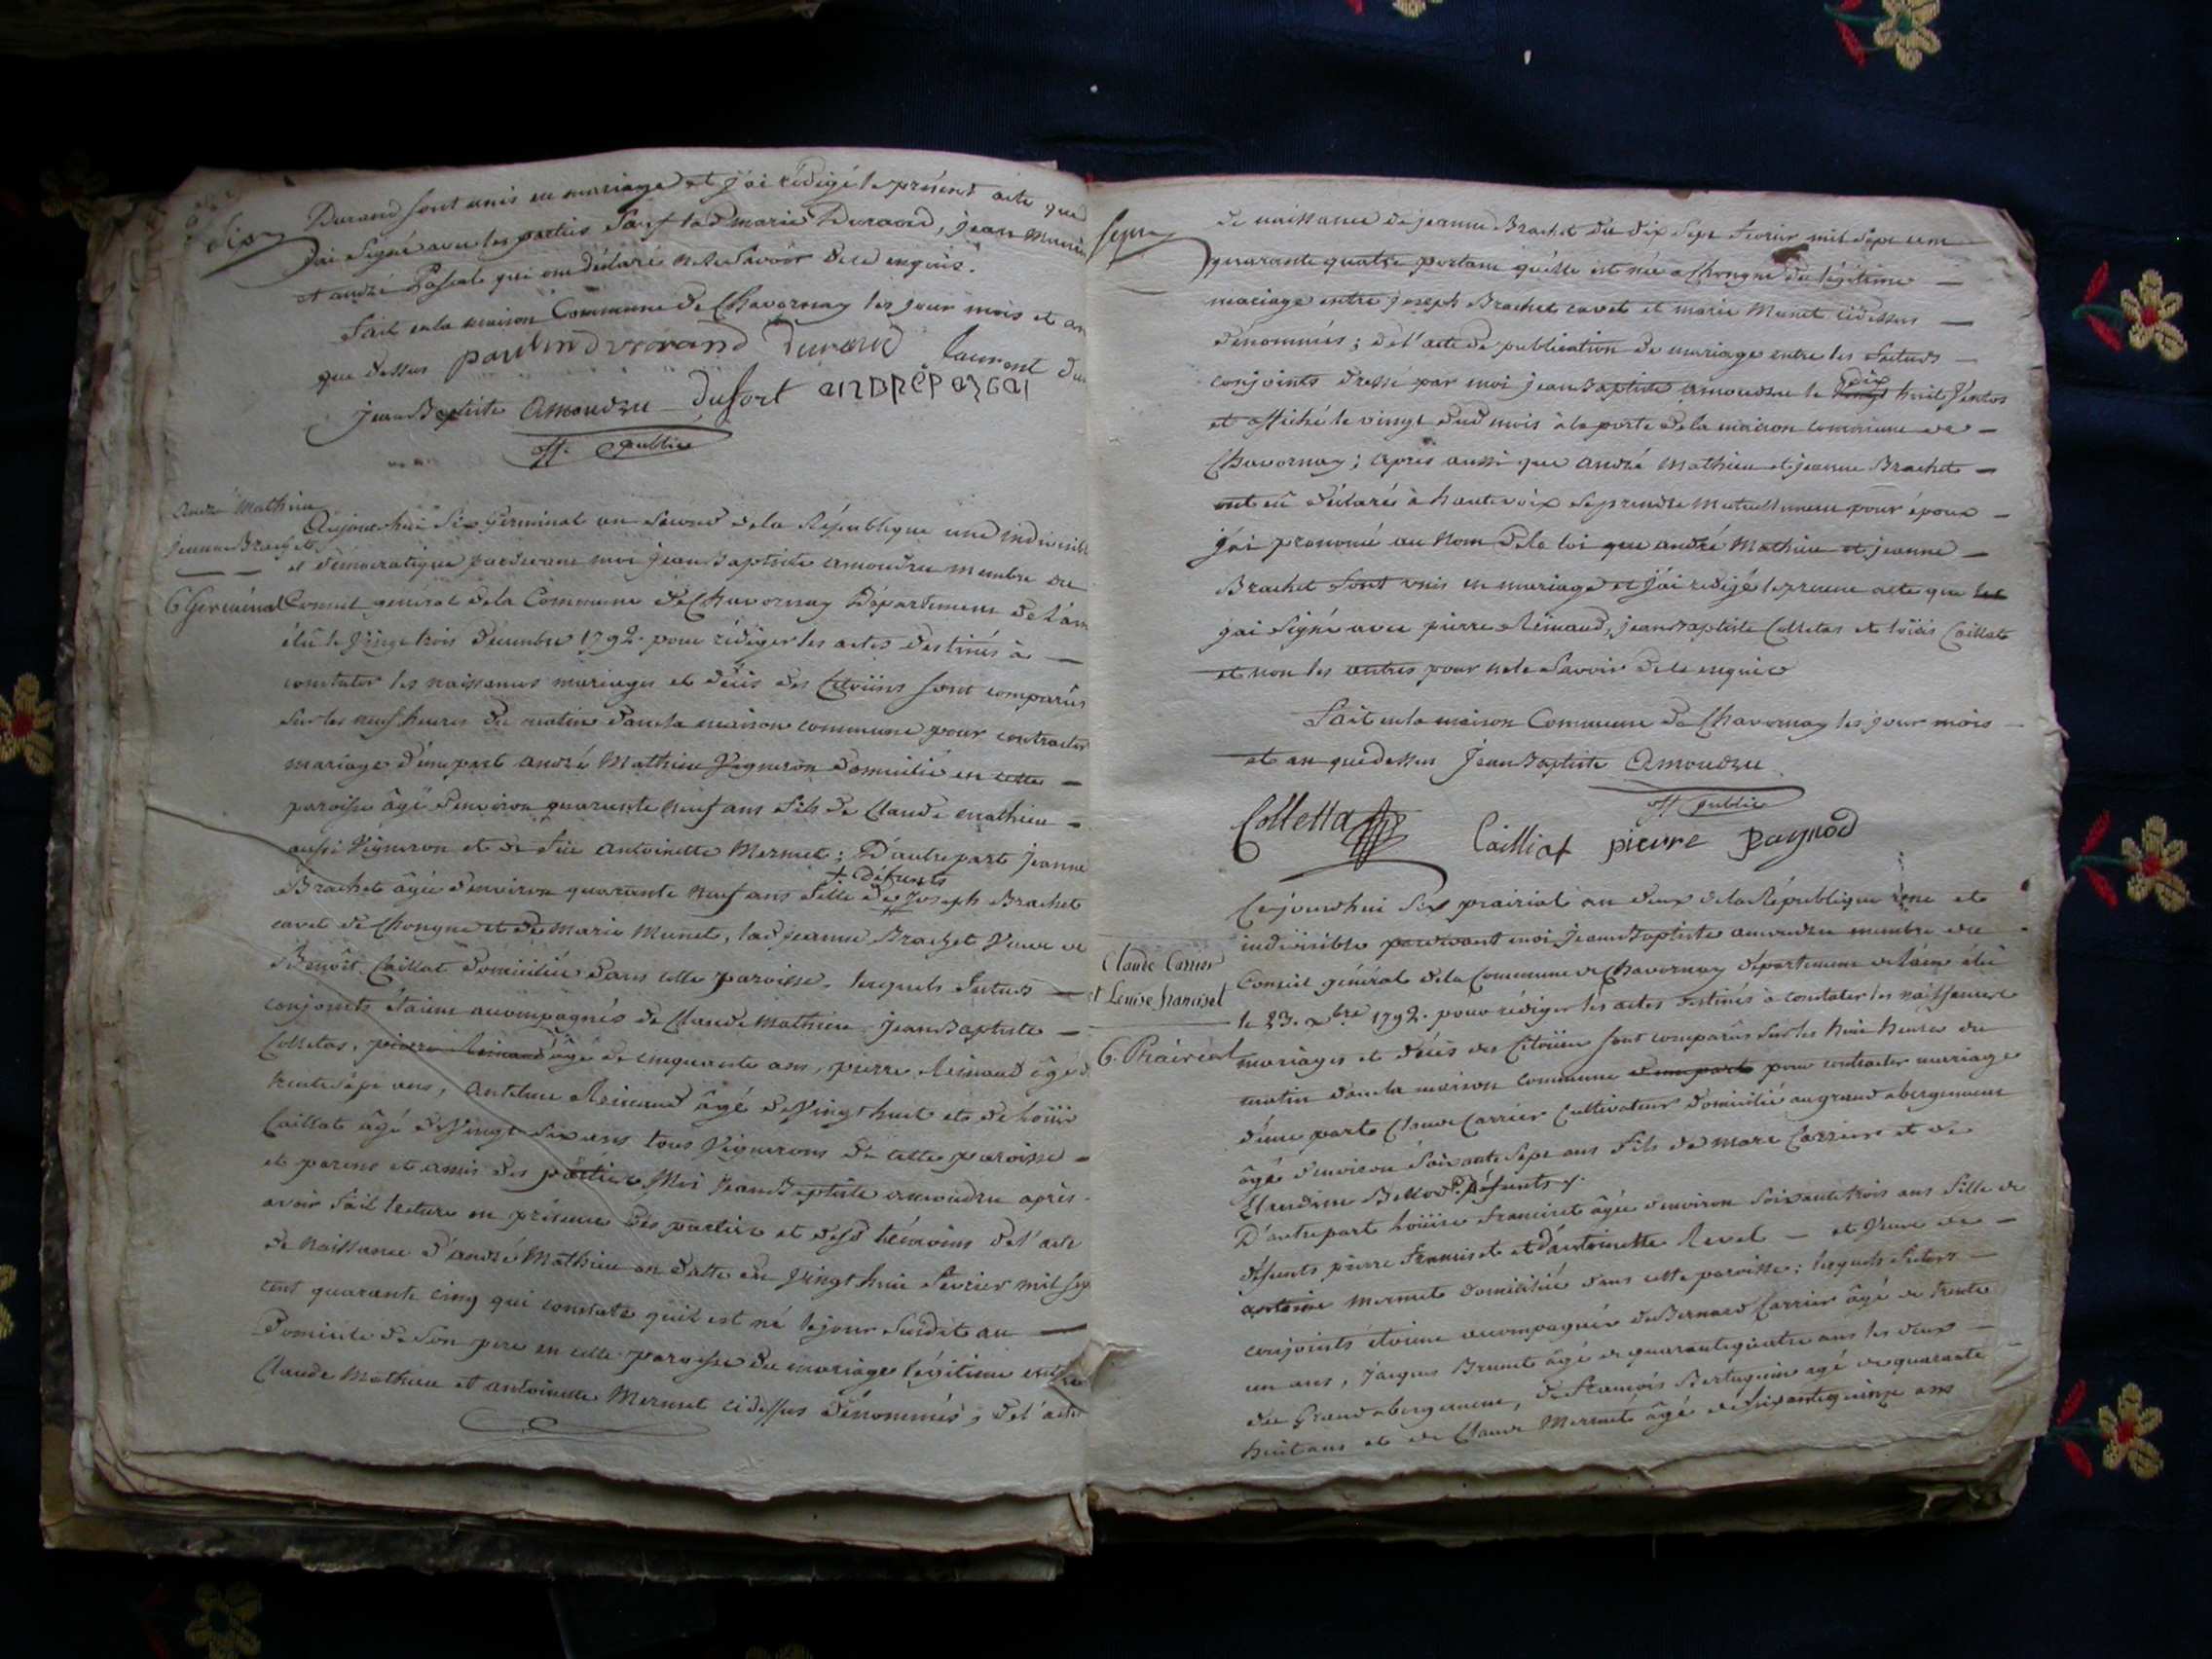 Durand sont unis en mariage et j'ai rédigé le présent acte que
j'ai signé avec les parties sauf lad marie Durand, jean
et andré Pascal qui ont déclaré ne le savoir de ce enquis.
fait en la maison Commune de Chavornay les jour mois et an
que dessus paulin durrand Durand laurent du
jean Baptiste amoudru dufort andré pascal
off. public
six
andré Mathieu
jeanne Brachet
6 Germinal
Aujourd'hui six Germinal an second de la République une indivisible
et démocratique pardevant moi jean Baptiste amoudru membre du
Conseil général de la Commune de Chavornay Département de l'ain
élu le vingt trois décembre 1792. pour rédiger les actes destinés à
constater les naissances mariages et décès des Citoïens sont comparus
sur les neuf heures du matin dans la maison commune pour contracter
mariage d'une part andré Mathieu Vigneron domicilié en cette
paroisse âgé d'environ quarante neuf ans fils de Claude mathieu
aussi Vigneron et de feüe antoinette Mermet ; D'autre part jeanne
+ défunts
Brachet âgée d'environ quarante neuf ans fille de Joseph Brachet
cavet de Chongne et de Marie Munet, lad jeanne Brachet Veuve de
Benôit Caillat domiciliée dans cette paroisse, lesquels futurs
conjoints étaient accompagnés de Claude Mathieu jean Baptiste
Colletas, pierre Reinaud âgé de cinquante ans, pierre Reinaud âgé de
trente sept ans, antelme Reinaud âgé de vingt huit et de Loüis
Caillat âgé de vingt six ans tous Vignerons de cette paroisse
et parens et amis des parties Moi Jean Baptiste amoudru après
avoir fait lecture en présence des parties et desd témoins de l'acte
de naissance d'andré Mathieu en datte du vingt huit février mil sep
cent quarante cinq qui constate qu'il est né le jour susdit au
Domicile de son pere en cette paroisse du mariage légitime entre
Claude Mathieu et antoinette Mermet ci dessus dénommés, de l'acte
de naissance de jeanne Brachet du dix sept fevrier mil sept cent
quarante quatre portant qu'elle est née a Chongne du légitime
mariage entre joseph Brachet cavet et marie Munet ci dessus
dénommés ; de l'acte de publication de mariage entre les futurs
conjoints dressé par moi jean Baptiste amoudru le dix huit Ventos
et affiché le vingt dud mois à la porte de la maison commune de
Chavornay ; après aussi que andré Mathieu et jeanne Brachet
ont eû déclaré à haute voix se prendre mutuellement pour époux
j'ai prononcé au nom de la loi que andré Mathieu et jeanne
Brachet sont unis en mariage et j'ai rédigé le présent acte que
j'ai signé avec pierre Reinaud, jean Baptiste Colletas et loüis Caillat
et non les autres pour ne le savoir de ce enquis
fait en la maison Commune de Chavornay les jour mois
et an que dessus Jean Baptiste Amoudru
off public
Colletta Cailliat pierre Raynod
Claude Carrier
et Louise franciset
6. Prairéal
Cejourdhui six prairial an deux de la République une et
indivisible pardevant moi Jean Baptiste amoudru membre du
Conseil général de la Commune de Chavornay département de l'ain élu
le 23. xbre 1792. pour rédiger les actes destinés à constater les naissances
mariages et décès des Citoïens sont comparus sur les huit heures du
matin dans la maison commune d'une part pour contracter mariage
d'une part Claude Carrier Cultivateur domicilié au grand abergement
âgé d'environ soixante sept ans fils de marc Carrier et de
Claudine Bellod défunts
D'autre part Loüise franciset âgée d'environ soixante trois ans fille de
défunts pierre franciset et d'antoinette Revel et Veuve de
antoine mermet domiciliée dans cette paroisse ; lesquels futurs
conjoints étoient accompagnés de Bernard Carrier âgé de trente
un ans, jacques Brunet âgé de quarante quatre ans les deux
du Grand abergement, de françois Bertuguin agé de quarante
huit ans et de Claude Mermet âgé de soixante quinze ans